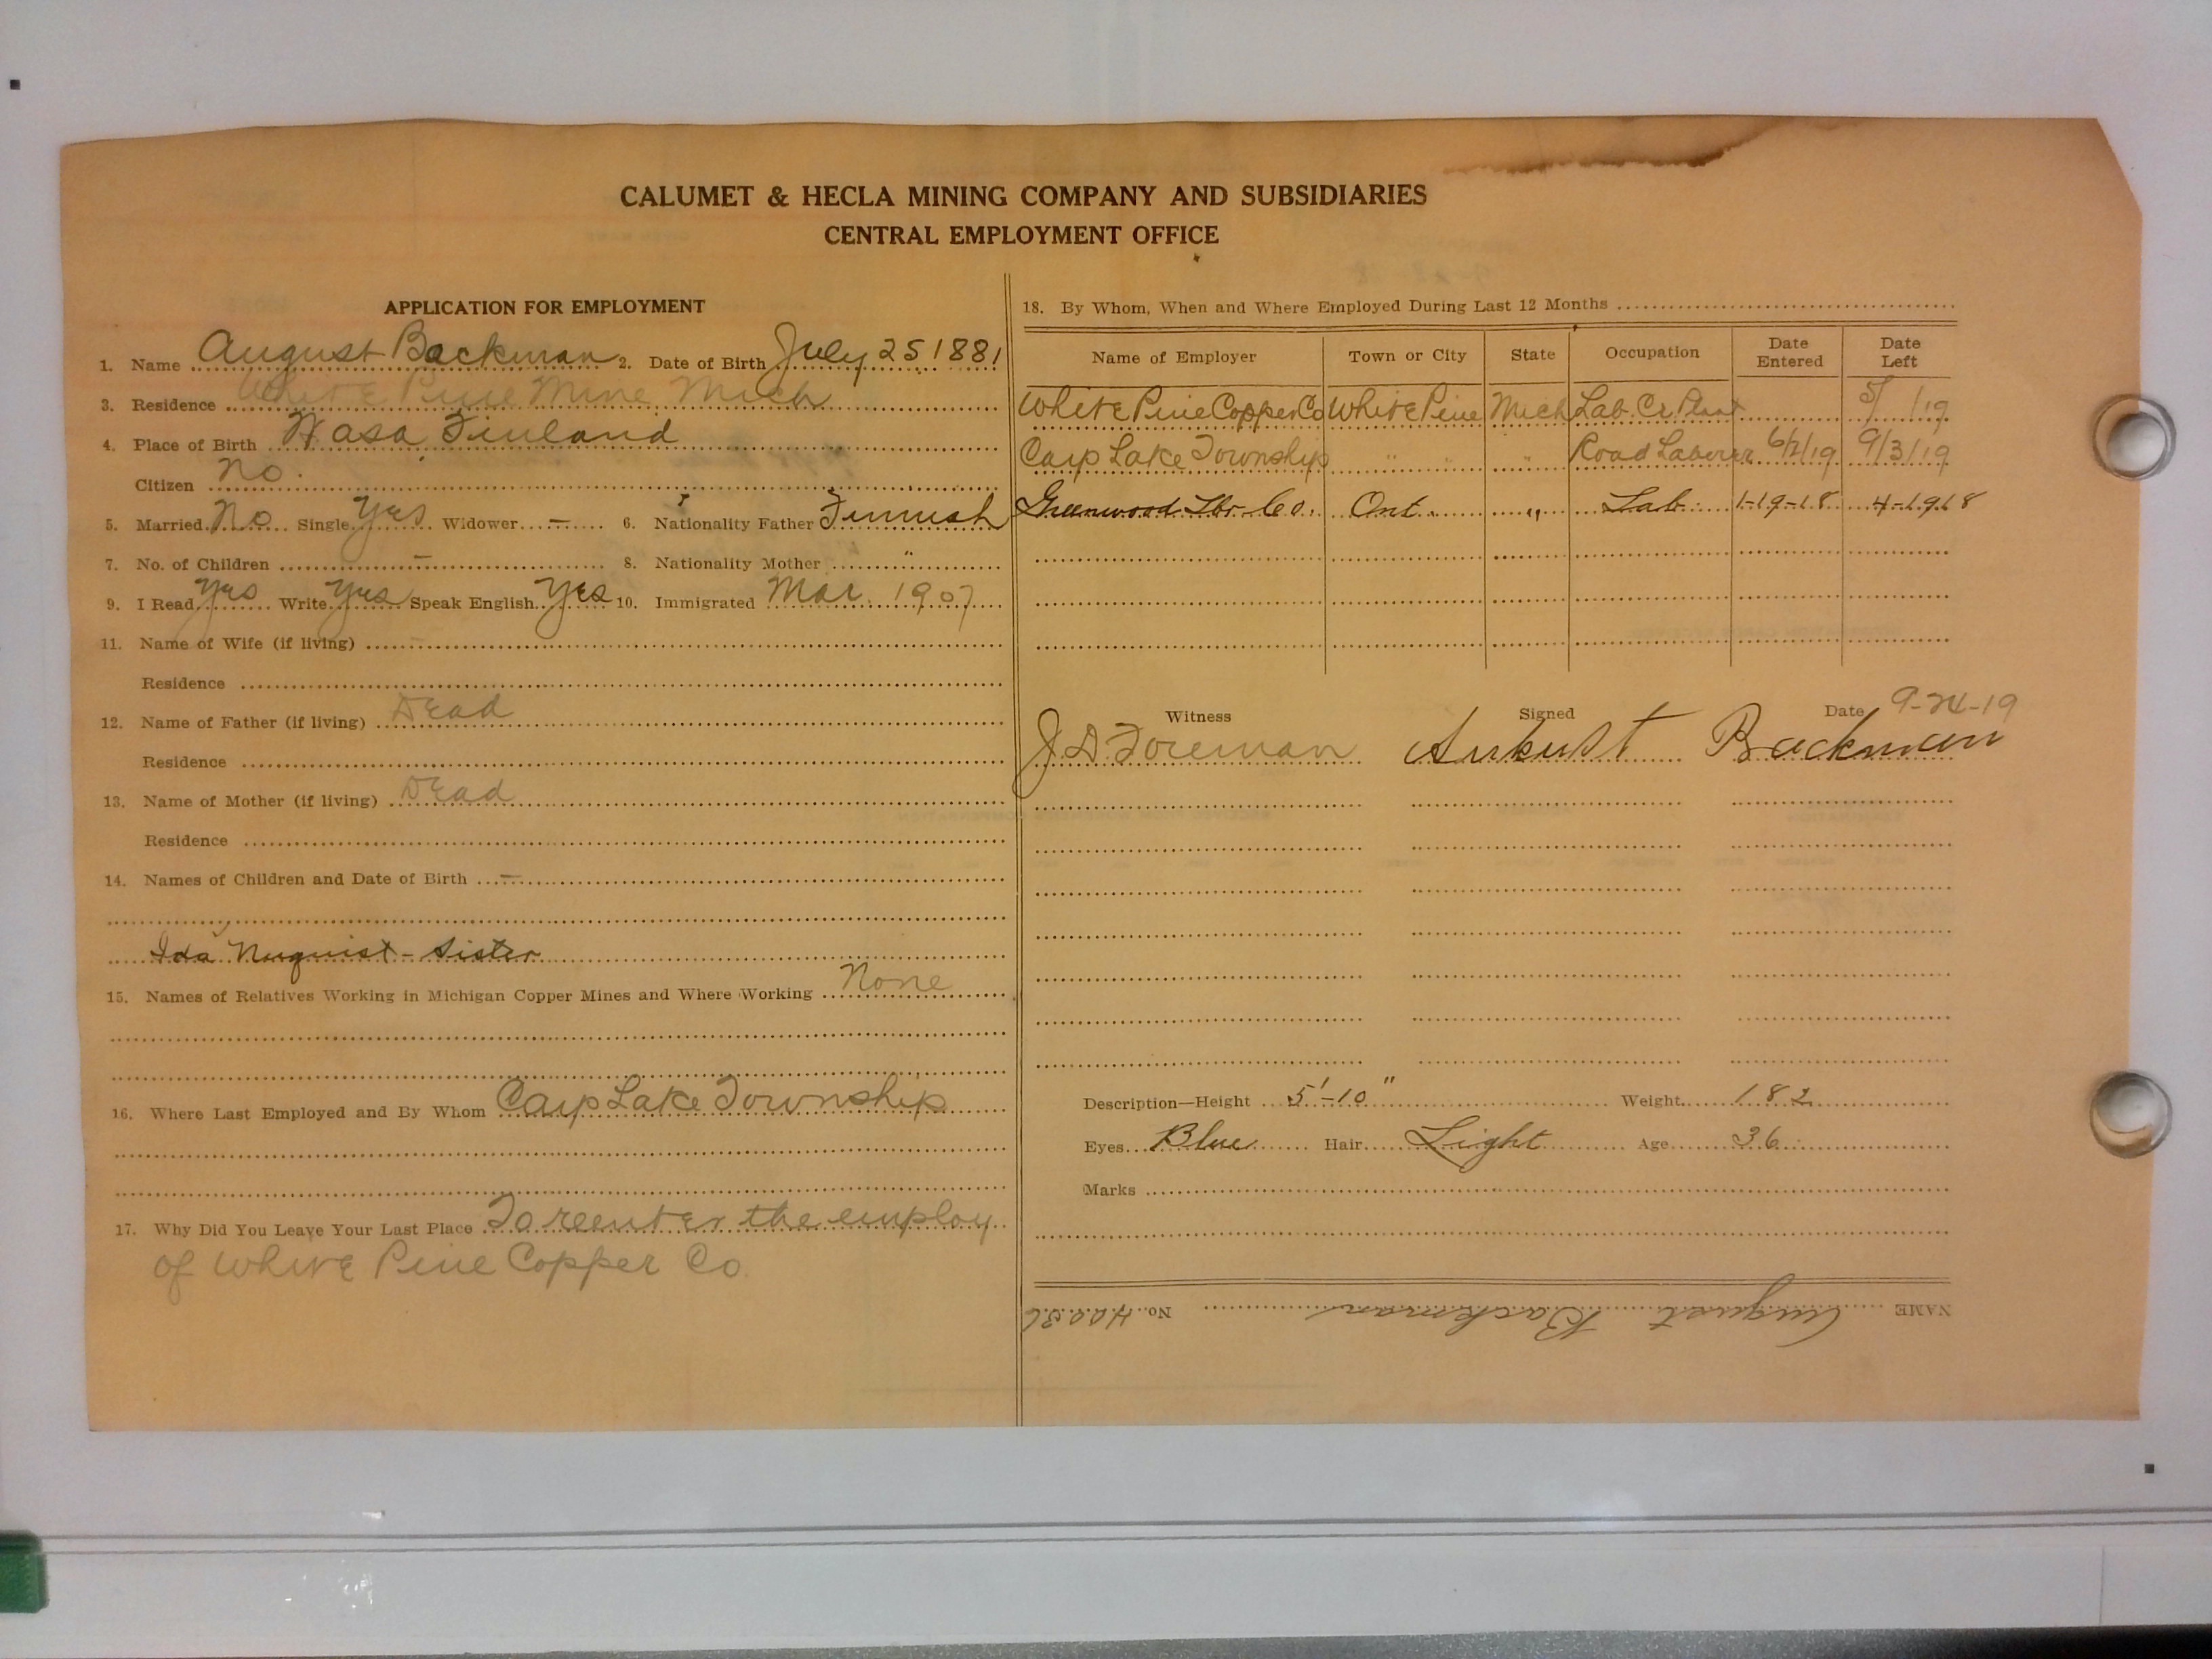 CALUMET & HECLA MINING COMPANY AND SUBSIDIARIES
CENTRAL EMPLOYMENT OFFICE
APPLICATION FOR EMPLOYMENT
1. Name August Backman 2. Date of Birth July 25 1881
3. Residence White Pine Mine, Mich
4. Place of Birth Wasa, Finland
Citizen No.
5. Married No Single Yes Widower — 6. Nationality Father Finnish
7. No. of Children — 8. Nationality Mother "
9. I Read Yes Write Yes Speak English Yes 10. Immigrated Mar. 1907
11. Name of Wife (if living) —
Residence
12. Name of Father (if living) Dead
Residence
13. Name of Mother (if living) Dead
Residence
14. Names of Children and Date of Birth —
Ida Nuquist - Sister
15. Names of Relatives Working in Michigan Copper Mines and Where Working None
16. Where Last Employed and By Whom Carp Lake Township
17. Why Did You Leave Your Last Place To reenter the employ
of White Pine Copper Co.
18. By Whom, When and Where Employed During Last 12 Months
Name of Employer Town or City State Occupation Date Entered Date Left
White Pine Copper Co White Pine Mich Lab. Cr. Plant 5/ /19
Carp Lake Township " " " Road Laborer 6/2/19 9/3/19
Greenwood Lbr Co. Ont. " Lab. 1-19-18 4-19-18
Witness Signed Date 9-24-19
J. D. Foreman Aukust Backman
Description—Height 5'-10" Weight 182
Eyes Blue Hair Light Age 36
Marks
NAME August Backman No.